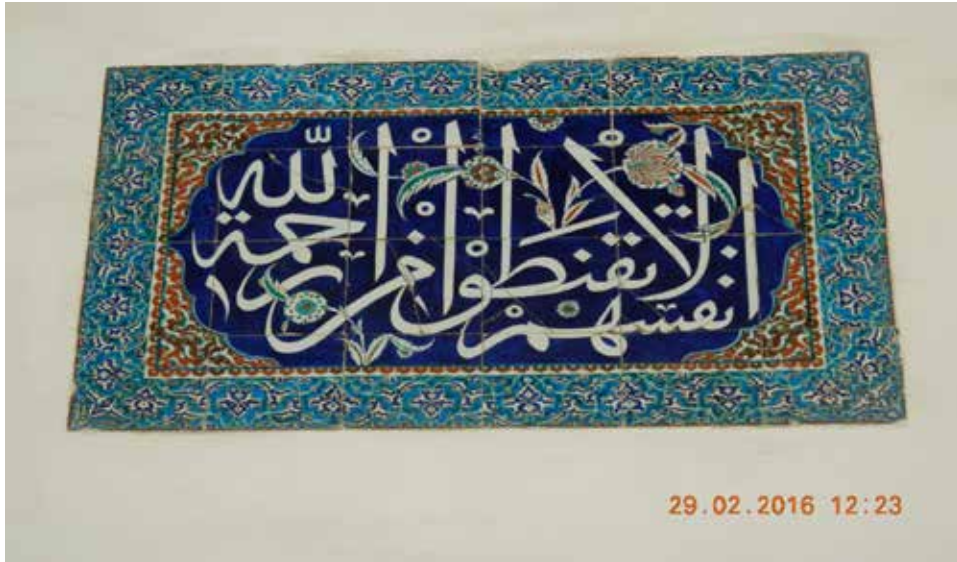 انفسهم لا تقنطوا من رحمة الله
29.02.2016 12:23